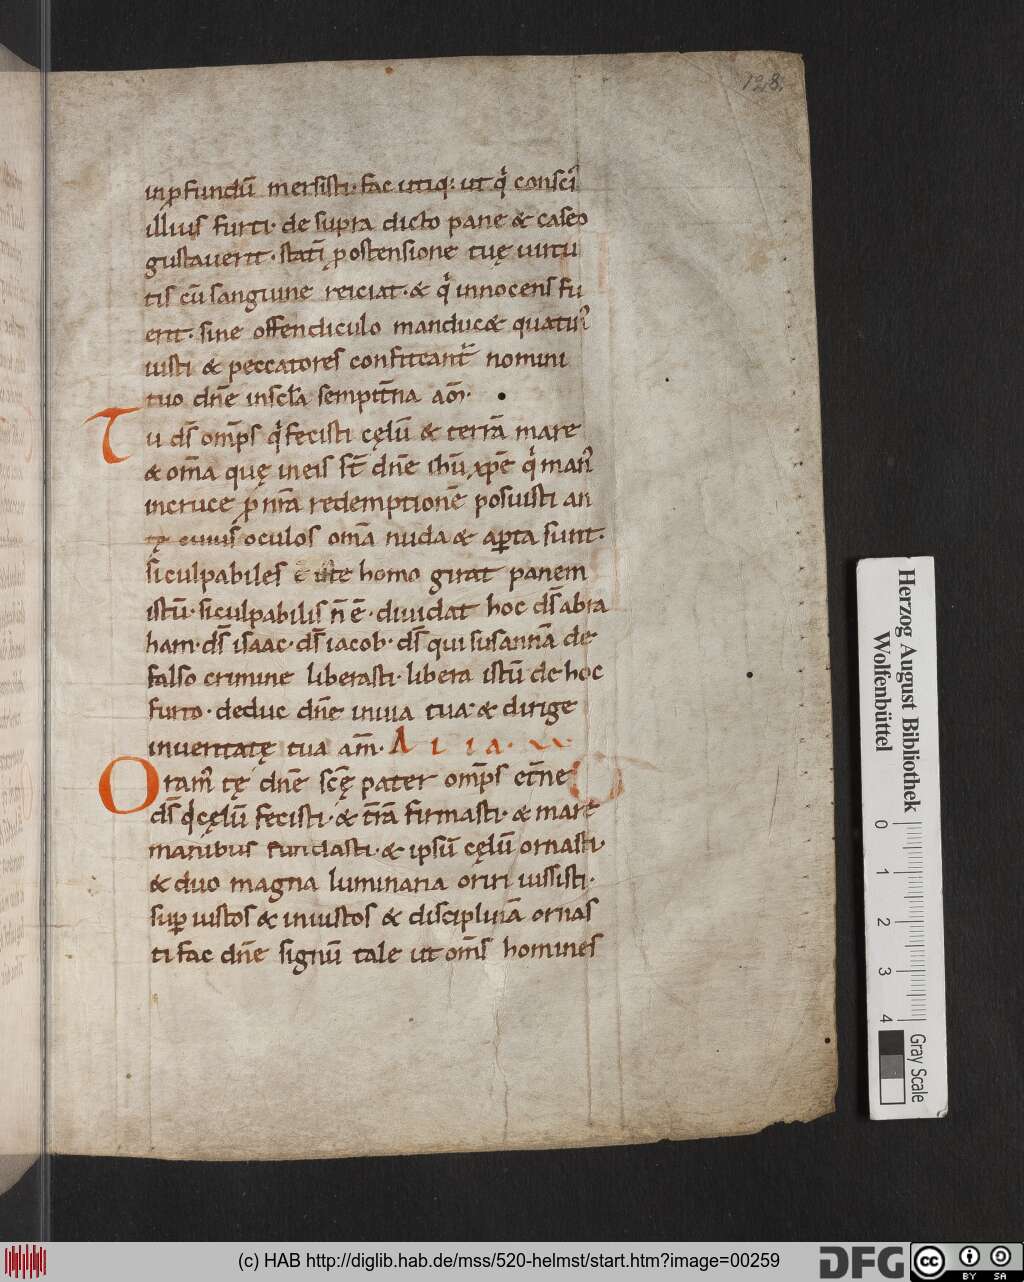 128.
inpfundū mersisti· fac utiq: ut q̇ consci̇
illius furti· de supra dicto pane & caseo
gustauerit· statī postensione tuę uirtu
tis cū sanguine reiciat· & q̇ innocens fu
erit· sine offendiculo manducet quatin᷒
iusti & peccatores confiteant᷒ nomini
tuo dn̄e inscl̄a sempit̄na am̄·
Tu ds̄ om̄ps q̇ fecisti cęlū & terrā mare
& om̄a quę ineis st̄ dn̄e ihū xp̄e q̇ man᷒
incruce p nr̄a redemptionē posuisti an
tę cuius oculos om̄a nuda & apta sunt·
si culpabiles ē iste homo girat panem
istū· si culpabilis n̄ ē· diuidat hoc ds̄ abra
ham· ds̄ isaac· ds̄ iacob· ds̄ qui susannā de
falso crimine liberasti· libera istū de hoc
furto· deduc dn̄e inuia tua· & dirige
inueritatę tua am̄· Alia·
Oram᷒ tę dn̄e scę̄ pater om̄ps et̄ne
ds̄ q̇ cęlū fecisti· & t̄rā firmasti· & mare
manibus fundasti· & ipsū cęlū ornasti·
& duo magna luminaria oriri iussisti·
sup iustos & iniustos & disciplinā ornas
ti fac dn̄e signū tale ut om̄s homines
Herzog August Bibliothek
Wolfenbüttel
0 1 2 3 4
Gray Scale
(c) HAB http://diglib.hab.de/mss/520-helmst/start.htm?image=00259
DFG
cc BY SA